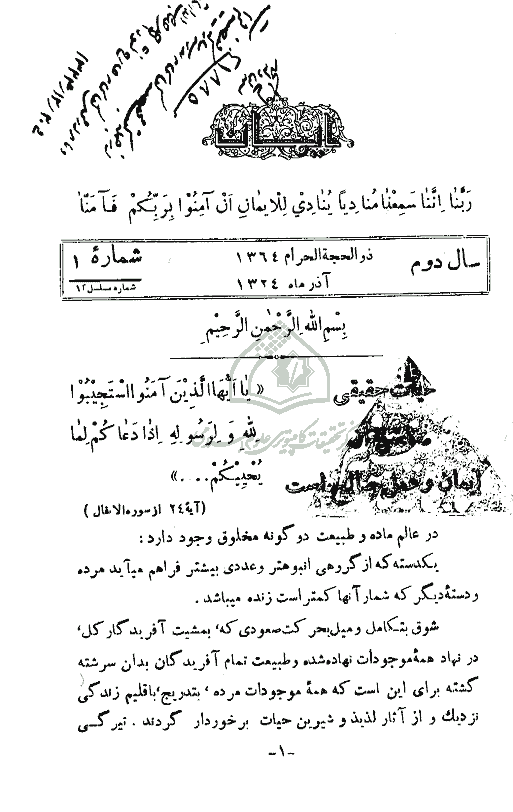 ۶۱۸۸۵
ایمان
رَبَّنٰا اِنَّنٰا سَمِعْنٰا مُنٰادِیاً یُنٰادِیْ لِلْاِیمٰانِ اَنْ آمِنُوْا بِرَبِّکُمْ فَـآمَنّٰا
سال دوم
ذوالحجة الحرام ۱۳۶۴
آذر ماه ۱۳۲۴
شمارهٔ ۱
شماره مسلسل ۱۲
بِسْمِ اللهِ الرَّحْمٰنِ الرَّحِیْمِ
حیات حقیقی
ایمان و عمل صالح است
« یٰا اَیُّهَا الَّذِیْنَ آمَنُوا اسْتَجِیْبُوْا
لِلّٰهِ وَ لِرَسُولِهِ اِذٰا دَعٰاکُمْ لِمٰا
یُحْیِیْکُمْ . . . »
(آیهٔ ۲۴ از سوره الانفال )
در عالم ماده و طبیعت دو گونه مخلوق وجود دارد :
یکدسته که از گروهی انبوهتر و عددی بیشتر فراهم میآید مرده
و دستهٔ دیگر که شمار آنها کمتر است زنده میباشد .
شوق بتکامل و میل بحرکت صعودی که٬ بمشیت آفریدگار کل٬
در نهاد همهٔ موجودات نهاده شده و طبیعت تمام آفریدگان بدان سرشته
گشته برای این است که همهٔ موجودات مرده ٬ بتدریج٬ باقلیم زندگی
نزدیك و از آثار لذیذ و شیرین حیات برخوردار گردند . تیرگـی
-۱-